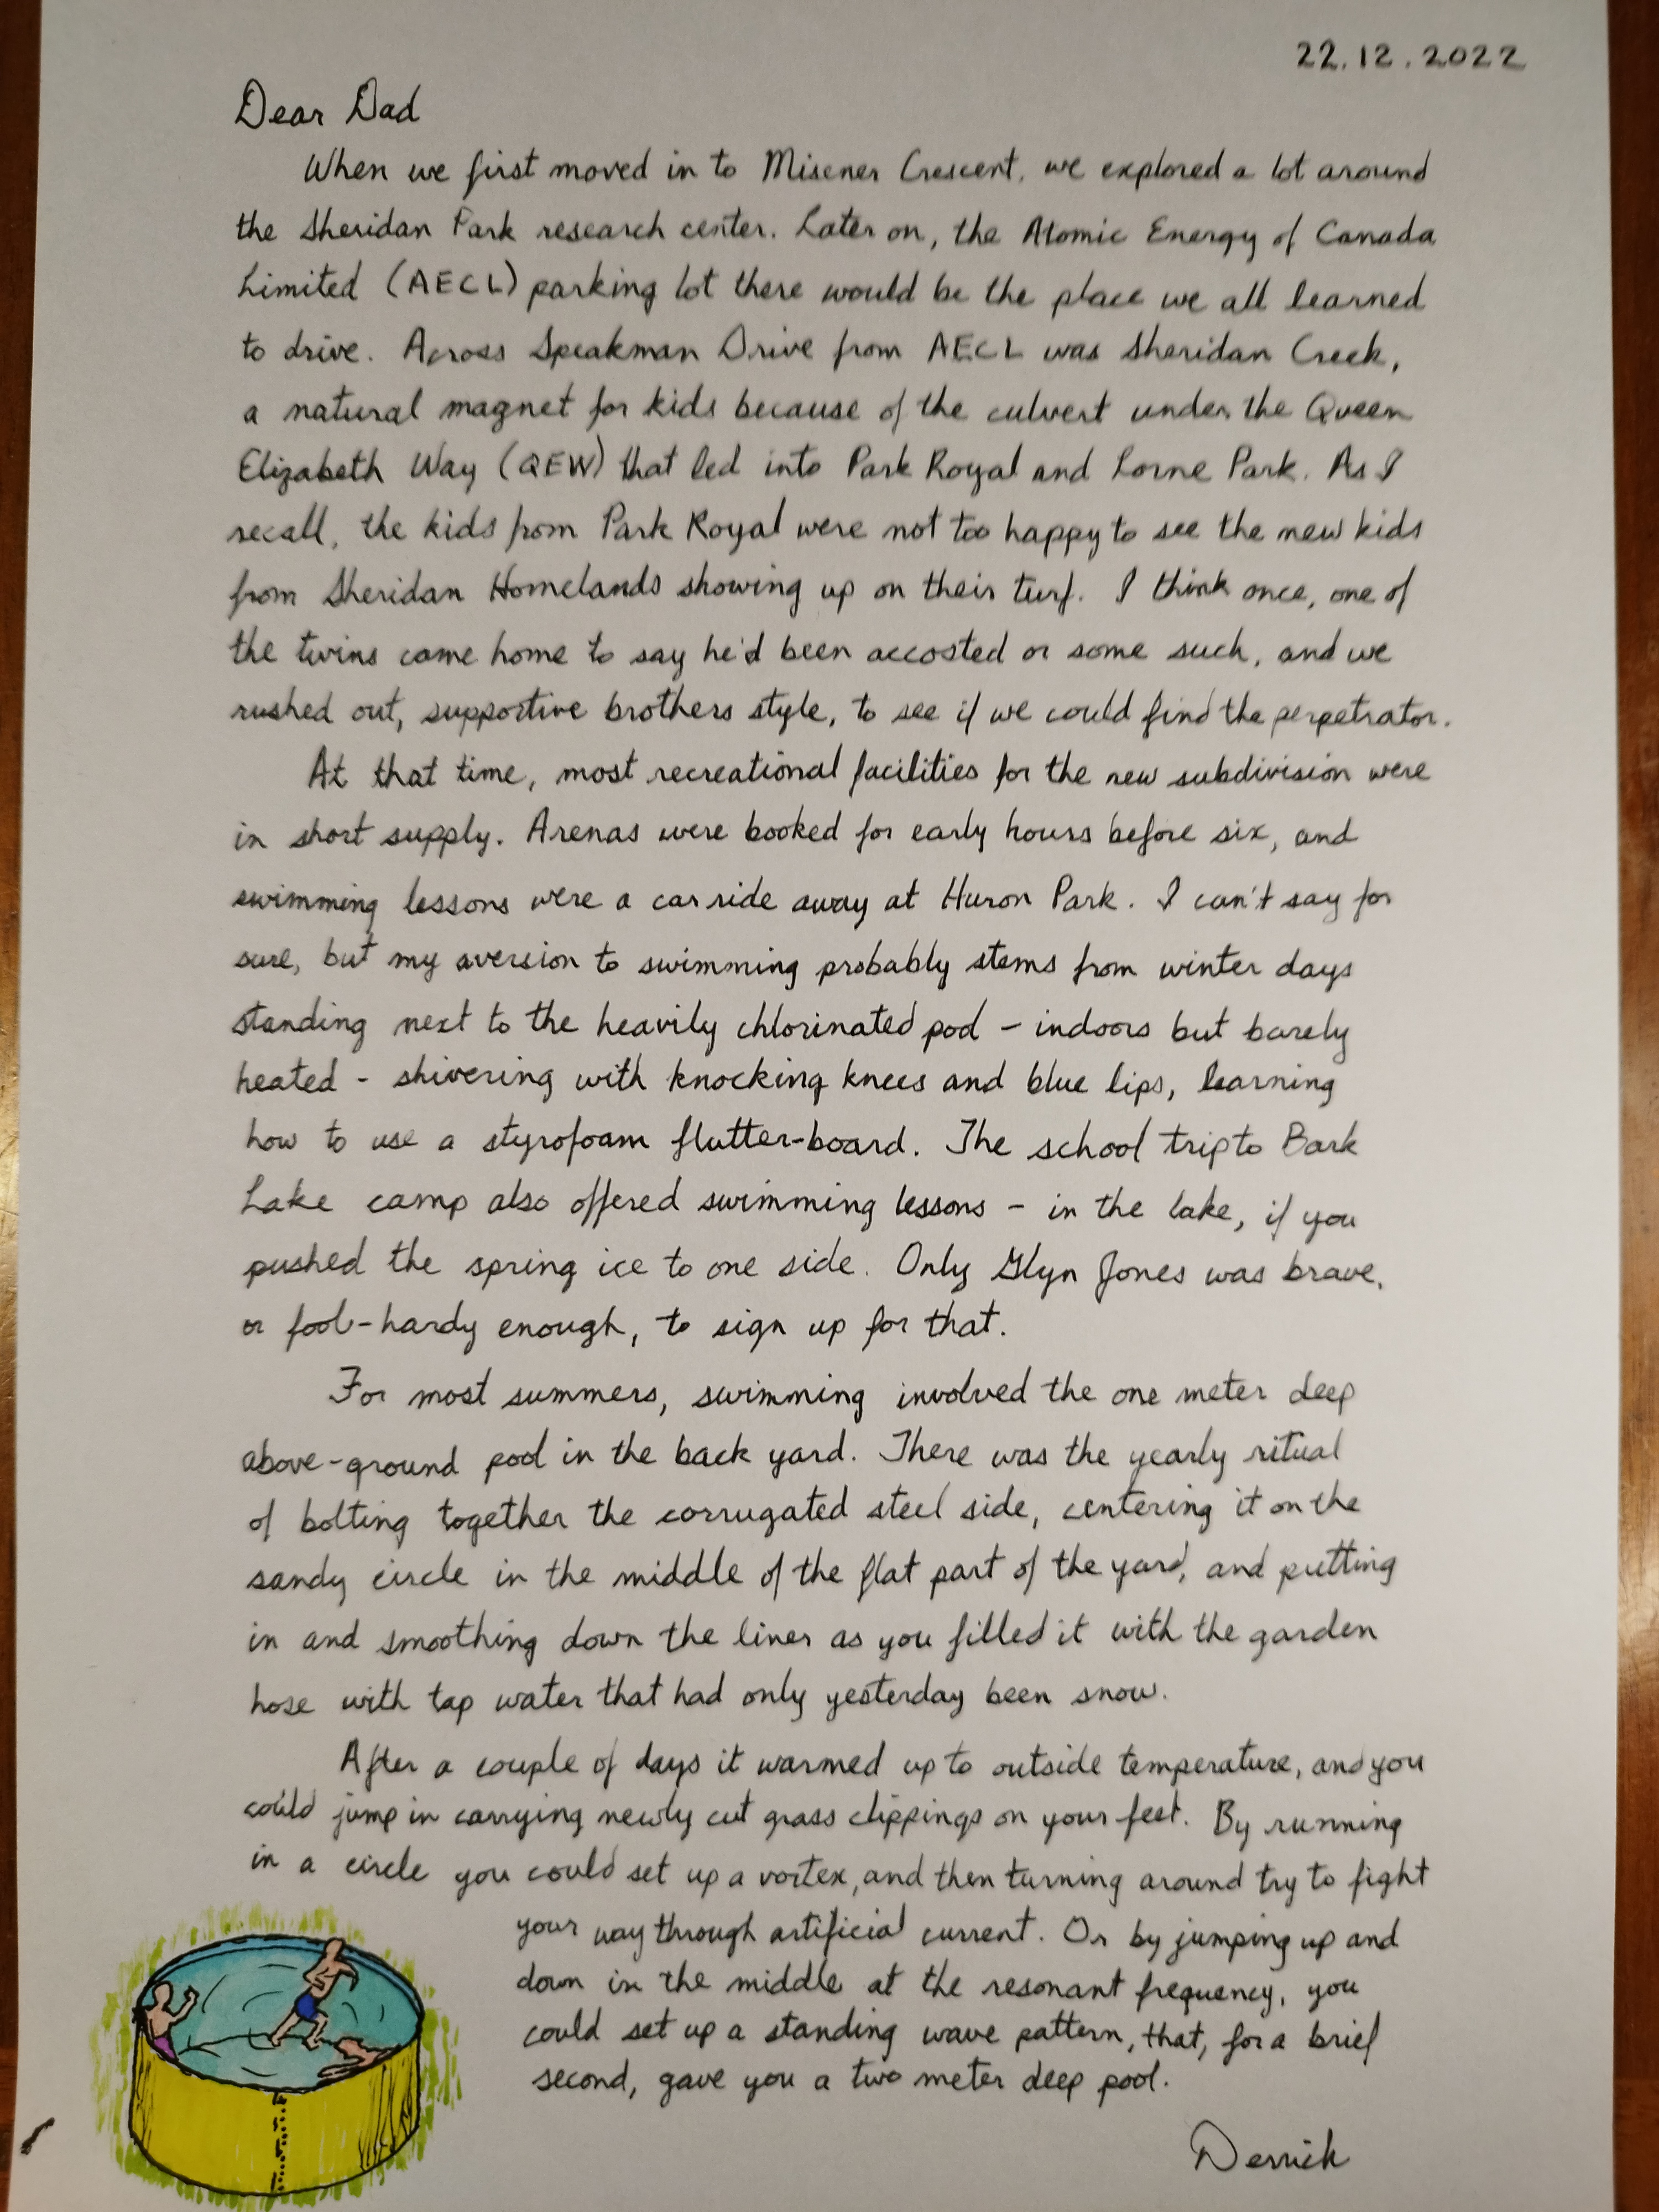 22.12.2022
Dear Dad
When we first moved in to Misener Crescent, we explored a lot around
the Sheridan Park research center. Later on, the Atomic Energy of Canada
Limited (AECL) parking lot there would be the place we all learned
to drive. Across Speakman Drive from AECL was Sheridan Creek,
a natural magnet for kids because of the culvert under the Queen
Elizabeth Way (QEW) that led into Park Royal and Lorne Park. As I
recall, the kids from Park Royal were not too happy to see the new kids
from Sheridan Homelands showing up on their turf. I think once, one of
the twins came home to say he'd been accosted or some such, and we
rushed out, supportive brothers style, to see if we could find the perpetrator.
At that time, most recreational facilities for the new subdivision were
in short supply. Arenas were booked for early hours before six, and
swimming lessons were a car ride away at Huron Park. I can't say for
sure, but my aversion to swimming probably stems from winter days
standing next to the heavily chlorinated pool - indoors but barely
heated - shivering with knocking knees and blue lips, learning
how to use a styrofoam flutter-board. The school trip to Bark
Lake camp also offered swimming lessons - in the lake, if you
pushed the spring ice to one side. Only Glyn Jones was brave,
or fool-hardy enough, to sign up for that.
For most summers, swimming involved the one meter deep
above-ground pool in the back yard. There was the yearly ritual
of bolting together the corrugated steel side, centering it on the
sandy circle in the middle of the flat part of the yard, and putting
in and smoothing down the liner as you filled it with the garden
hose with tap water that had only yesterday been snow.
After a couple of days it warmed up to outside temperature, and you
could jump in carrying newly cut grass clippings on your feet. By running
in a circle you could set up a vortex, and then turning around try to fight
your way through artificial current. Or by jumping up and
down in the middle at the resonant frequency, you
could set up a standing wave pattern, that, for a brief
second, gave you a two meter deep pool.
Derrick